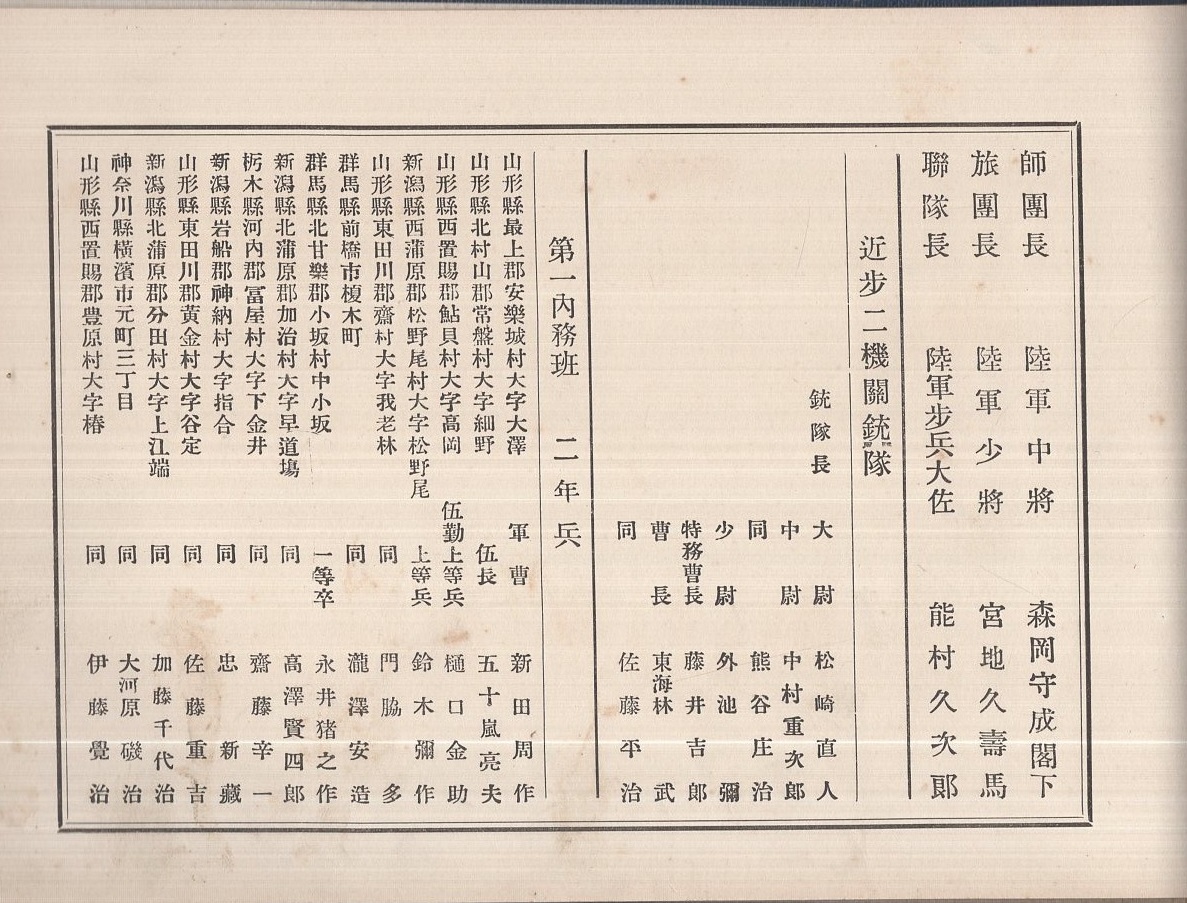 師團長 陸軍中將 森岡守成閣下
旅團長 陸軍少將 宮地久壽馬
聯隊長 陸軍步兵大佐 能村久次郞
近步二機關銃隊
銃隊長 大尉 松崎直人
中尉 中村重次郞
同 熊谷庄治
少尉 外池彌
特務曹長 藤井吉郞
曹長 東海林武
同 佐藤平治
第一內務班 二年兵
山形縣最上郡安樂城村大字大澤 軍曹 新田周作
山形縣北村山郡常盤村大字細野 伍長 五十嵐亮夫
山形縣西置賜郡鮎貝村大字高岡 伍勤上等兵 樋口金助
新潟縣西蒲原郡松野尾村大字松野尾 上等兵 鈴木彌作
山形縣東田川郡齋村大字我老林 同 門脇多
群馬縣前橋市榎木町 同 瀧澤安造
群馬縣北甘樂郡小坂村中小坂 一等卒 永井猪之作
新潟縣北蒲原郡加治村大字早道塲 同 高澤賢四郞
栃木縣河內郡富屋村大字下金井 同 齋藤辛一
新潟縣岩船郡神納村大字指合 同 忠新藏
山形縣東田川郡黃金村大字谷定 同 佐藤重吉
新潟縣北蒲原郡分田村大字上江端 同 加藤千代治
神奈川縣橫濱市元町三丁目 同 大河原磯治
山形縣西置賜郡豊原村大字椿 同 伊藤覺治